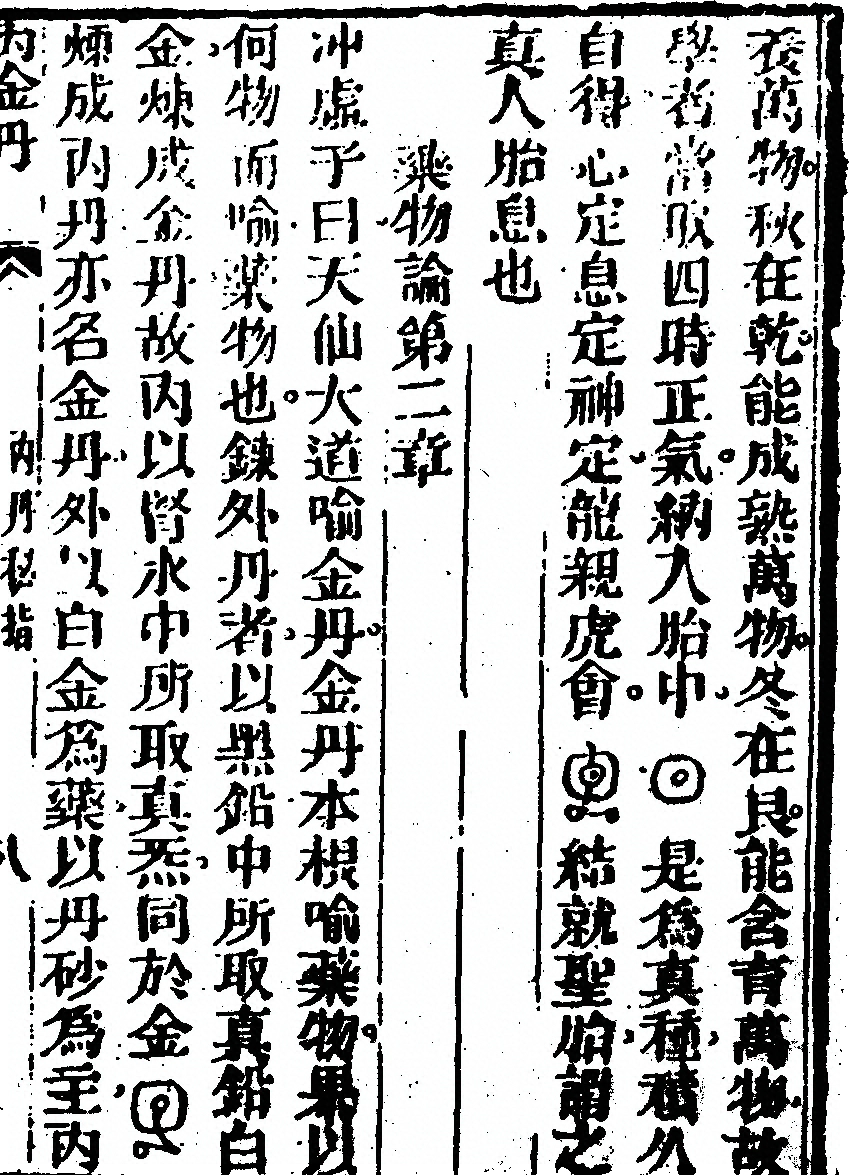 養萬物秋在乾能成熟萬物冬在艮能含育萬物故
學者當取四時正氣納入胎中是為真種積久
自得心定息定神定龍親虎會結就聖胎謂之
真人胎息也
藥物論第二章
冲虛子曰天仙大道喻金丹金丹本根喻藥物果以
何物而喻藥物也鍊外丹者以黑鉛中所取真鉛白
金煉成金丹故內以腎水中所取真炁同於金
煉成內丹亦名金丹外以白金為藥以丹砂為主內
內金丹
內丹秘指
八